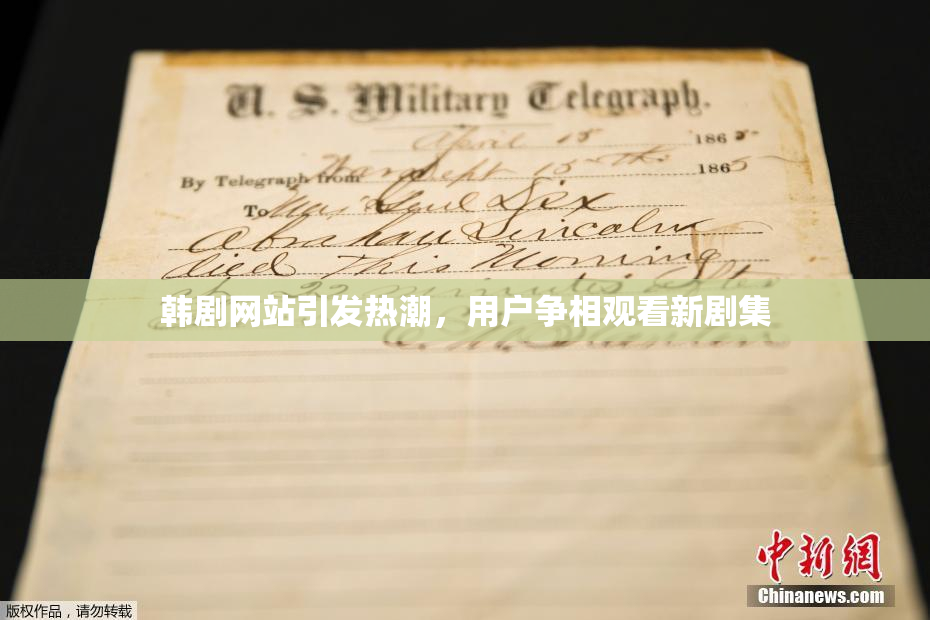 U. S. Military Telegraph.
April 15 1865
By Telegraph from War Dept 15th 1865
To Maj Genl Dix
Abraham Lincoln
died This Morning
at 22 minutes after
韩剧网站引发热潮，用户争相观看新剧集
E. M. Stanton
中新网
Chinanews.com
版权作品，请勿转载